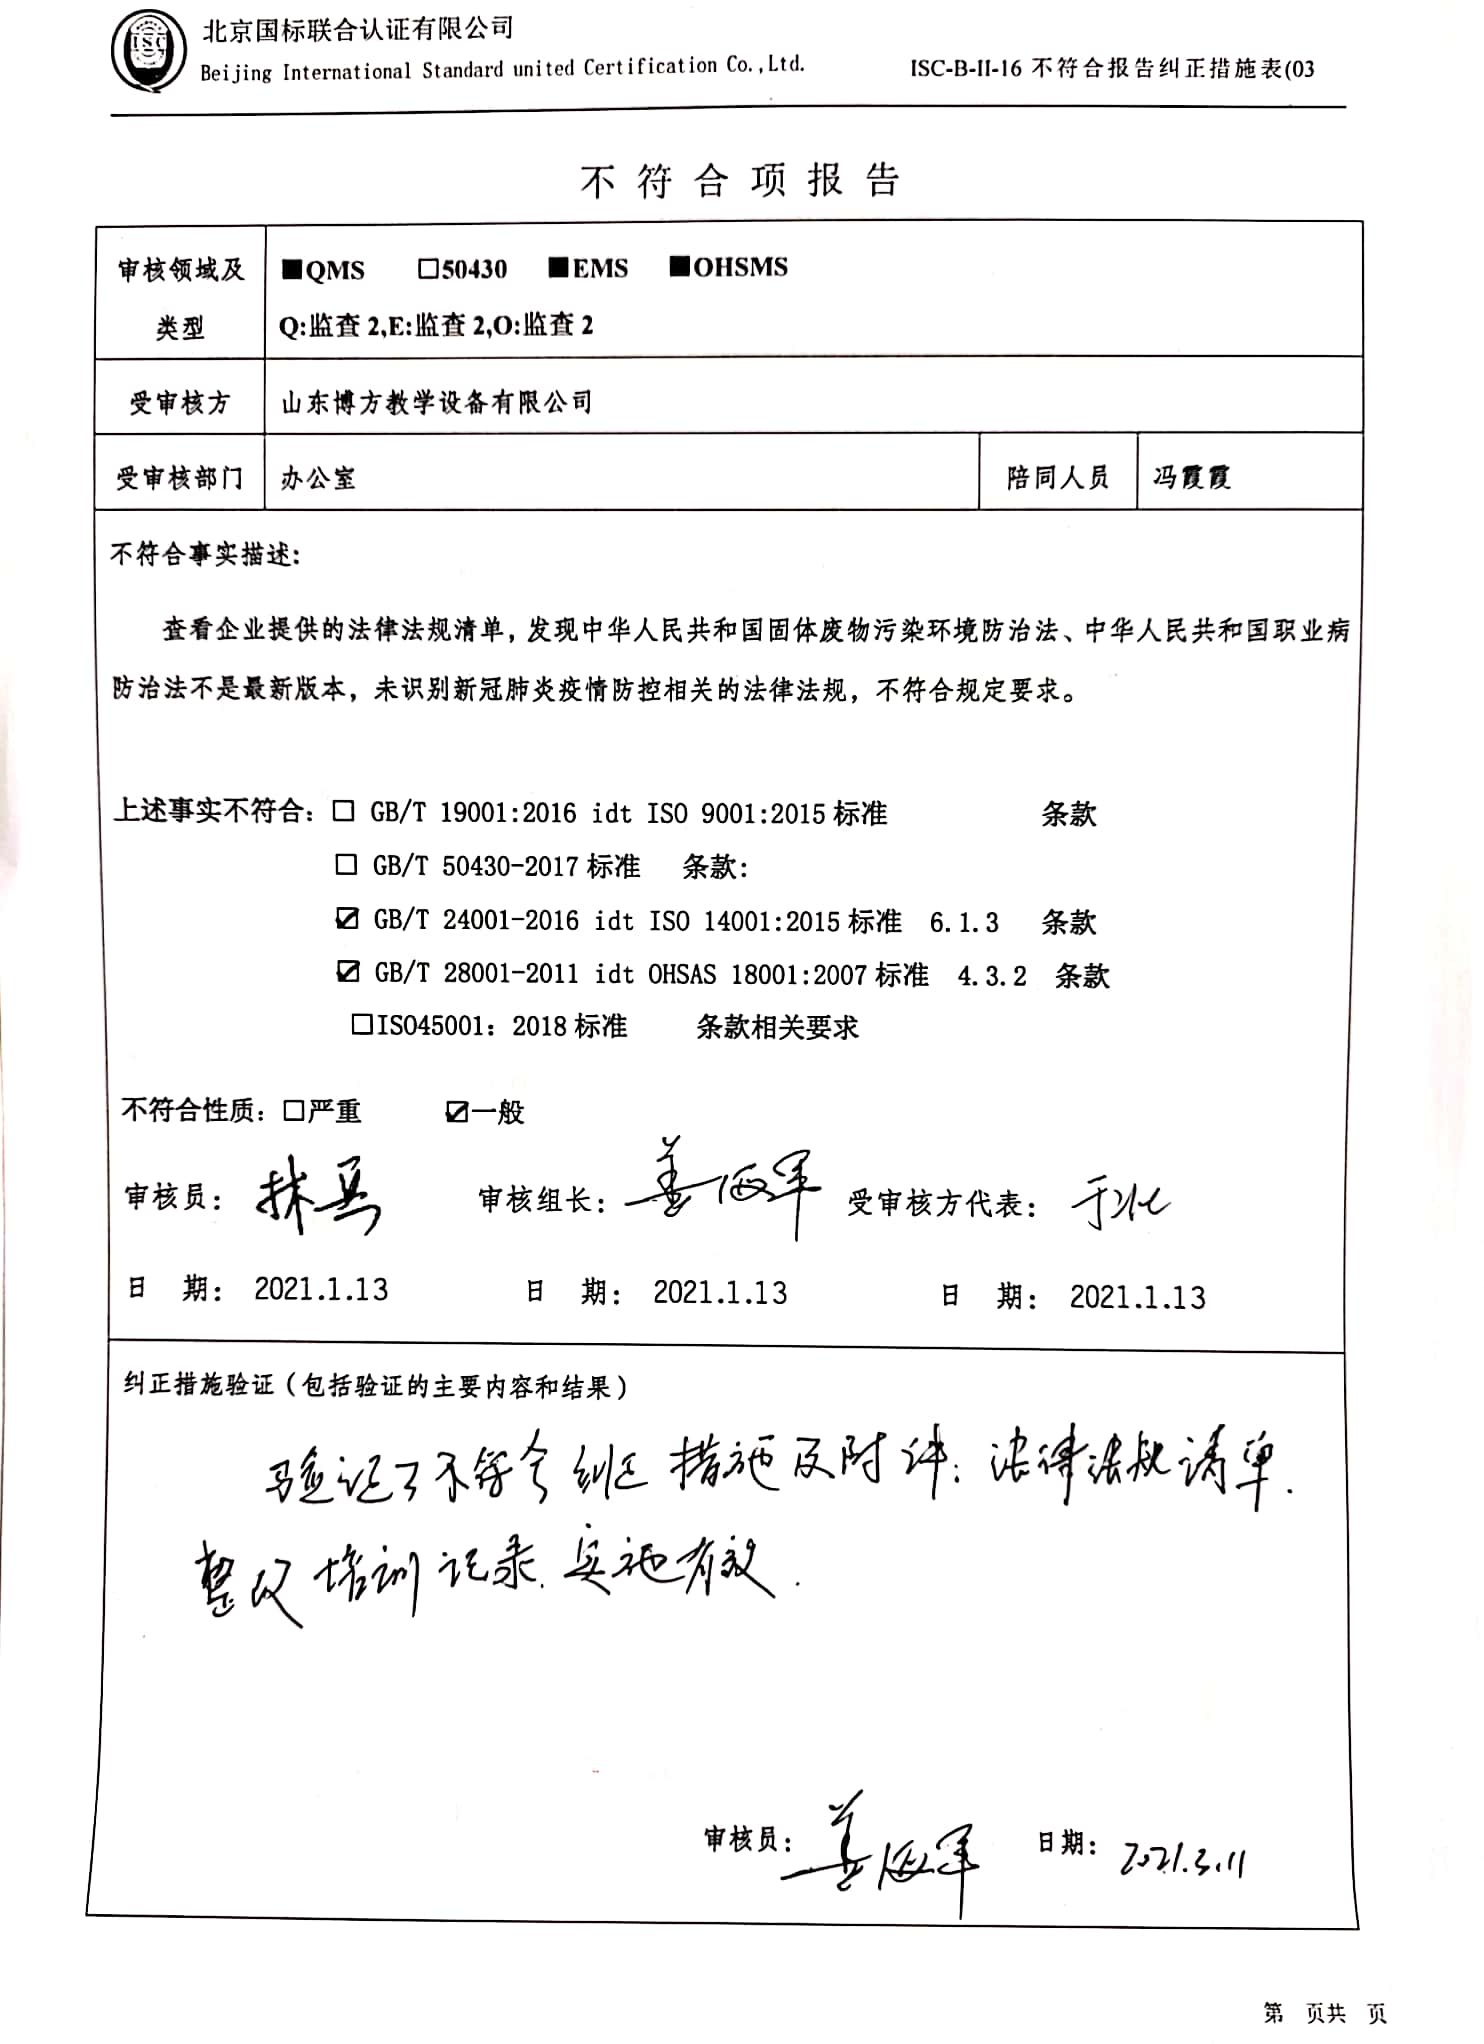 北京国标联合认证有限公司
Beijing International Standard united Certification Co.,Ltd.
ISC-B-II-16 不符合报告纠正措施表(03
ISC
不符合项报告
审核领域及类型
■QMS □50430 ■EMS ■OHSMS
Q:监查 2,E:监查 2,O:监查 2
受审核方 山东博方教学设备有限公司
受审核部门 办公室 陪同人员 冯霞霞
不符合事实描述:
查看企业提供的法律法规清单，发现中华人民共和国固体废物污染环境防治法、中华人民共和国职业病
防治法不是最新版本，未识别新冠肺炎疫情防控相关的法律法规，不符合规定要求。
上述事实不符合：□ GB/T 19001:2016 idt ISO 9001:2015 标准 条款
□ GB/T 50430-2017 标准 条款:
☑ GB/T 24001-2016 idt ISO 14001:2015 标准 6.1.3 条款
☑ GB/T 28001-2011 idt OHSAS 18001:2007 标准 4.3.2 条款
□ISO45001：2018 标准 条款相关要求
不符合性质：□严重 ☑一般
审核员: 审核组长: 姜海军 受审核方代表:
日 期: 2021.1.13 日 期: 2021.1.13 日 期: 2021.1.13
纠正措施验证（包括验证的主要内容和结果）
验证了不符合纠正措施及附件：法律法规清单.
整改培训记录.实施有效.
审核员: 姜海军 日期: 2021.3.11
第 页共 页